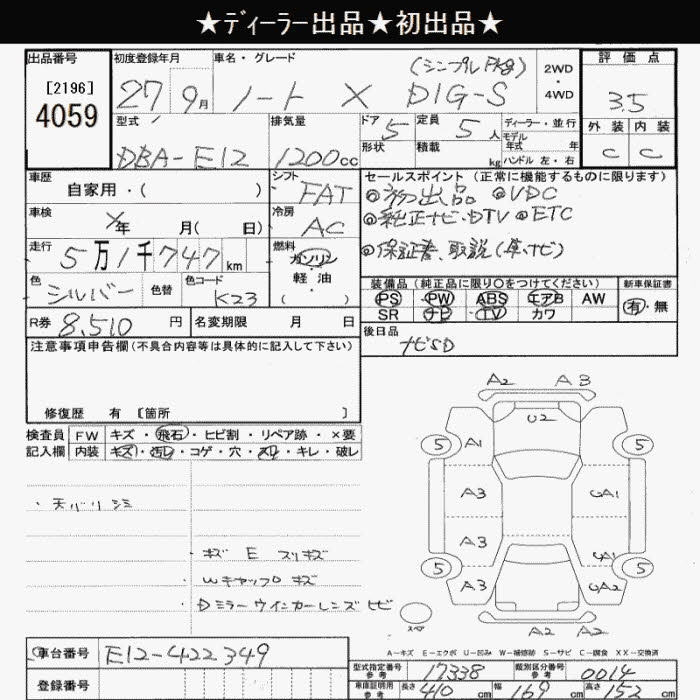 ★ディーラー出品★初出品★
出品番号
[2196]
4059
初度登録年月
27 9月
車名・グレード
(シンプルPkg)
ノート X DIG-S
2WD
4WD
評価点
3.5
外装 内装
C C
型式
DBA-E12
排気量
1200cc
ドア 5
形状
定員 5人
積載 kg
ディーラー・並行
モデル
年式 年
ハンドル 左・右
車歴
自家用・( )
シフト
FAT
車検
年 月( 日)
冷房
AC
走行
5万1千747km
燃料
ガソリン
軽油
( )
色
シルバー
色替
色コード
K23
R券 8,510円
名変期限 月 日
セールスポイント (正常に機能するものに限ります)
◎初出品 ◎VDC
◎純正ナビ・DTV ◎ETC
◎保証書、取説(車、ナビ)
装備品 (純正品に限り○をつけてください)
PS PW ABS エアB AW
SR ナビ TV カワ
新車保証書
有・無
後日品
ナビSD
注意事項申告欄(不具合内容等は具体的に記入して下さい)
修復歴 有 [箇所 ]
検査員
記入欄
FW キズ・飛石・ヒビ割・リペア跡・×要
内装 キズ・汚レ・コゲ・穴・スリ・キレ・破レ
・天バリシミ
・キズ E スリキズ
・Wキャップロキズ
・Dミラーウインカーレンズヒビ
A2 A3
U2
5 A1 5
A3 GA1
A3 GA1
5 5
A3 GA2
スペア
A2 A2
A-キズ E-エクボ U-凹み W-補修跡 S-サビ C-腐食 XX-交換済
車台番号 E12-422349
登録番号
型式指定番号
参考
17338
類別区分番号
参考
0014
車庫証明用
参考
長さ 410cm 幅 169cm 高さ 152cm